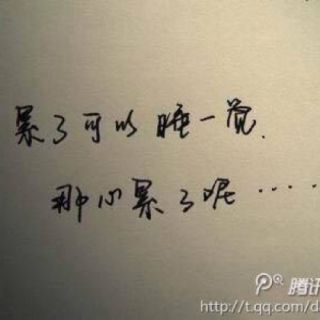 累了可以睡一觉.
那心累了呢……
腾讯
http://t.qq.com/d